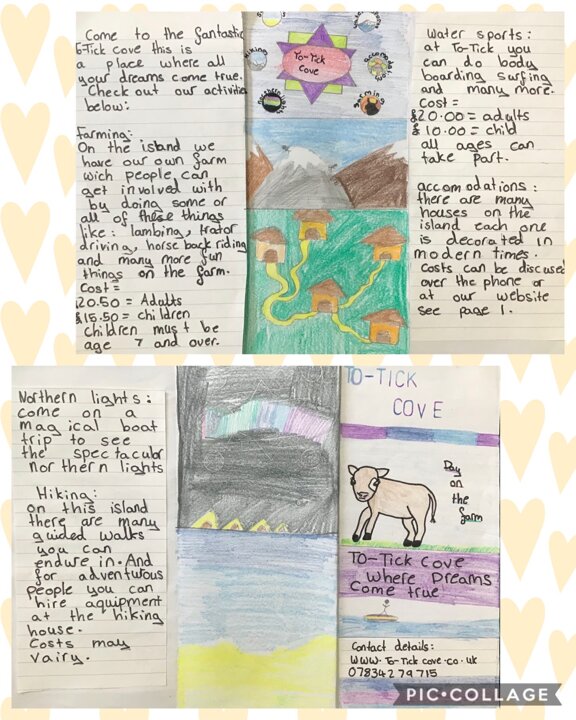 Come to the fantastic
To-Tick cove this is
a place where all
your dreams come true.
Check out our activities
below:
Farming:
On the island we
have our own farm
wich people can
get involved with
by doing some or
all of these things
like: lambing, trator
driving, horse back riding
and many more fun
things on the farm.
Cost =
£20.50 = Adults
£15.50 = children
Children must be
age 7 and over.
Hiking
accomodations
farming
northern lights
To-Tick
Cove
Water sports:
at To-Tick you
can do body
boarding surfing
and many more.
Cost =
£20.00 = adults
£10.00 = child
all ages can
take part.
accomodations:
there are many
houses on the
island each one
is decorated in
modern times.
Costs can be discused
over the phone or
at our website
see page 1.
Northern lights:
come on a
magical boat
trip to see
the spectacular
northern lights
Hiking:
on this island
there are many
guided walks
you can
endure in. And
for adventurous
people you can
hire aquipment
at the hiking
house.
Costs may
vairy.
TO-TICK
COVE
Day
on
the
farm
TO-TICK COVE
where Dreams
come true
Contact details:
www.To-Tickcove.co.uk
07834279715
PIC•COLLAGE